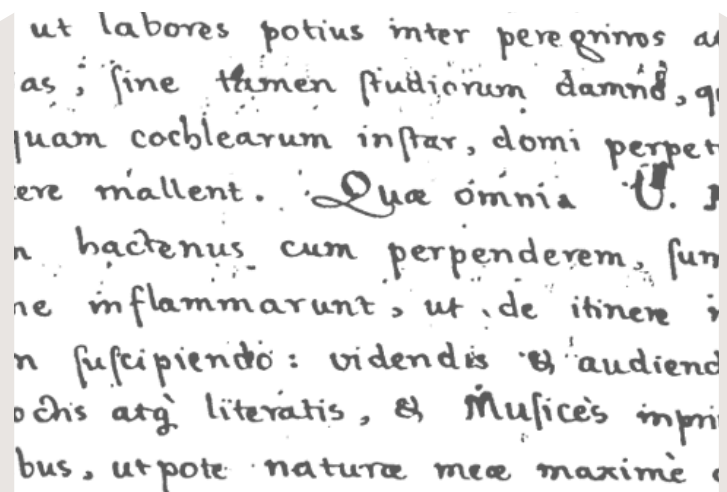 ut labores potius inter peregrinos
as, ſine tamen ſtudiorum damnô,
quam cochlearum inſtar, domi
mallent. Quæ omnia V.
hactenus cum perpenderem,
inflammarunt, ut de itinere
ſuſcipiendo: videndis &
atq́ literatis, & Muſices
utpote naturæ meæ maximè